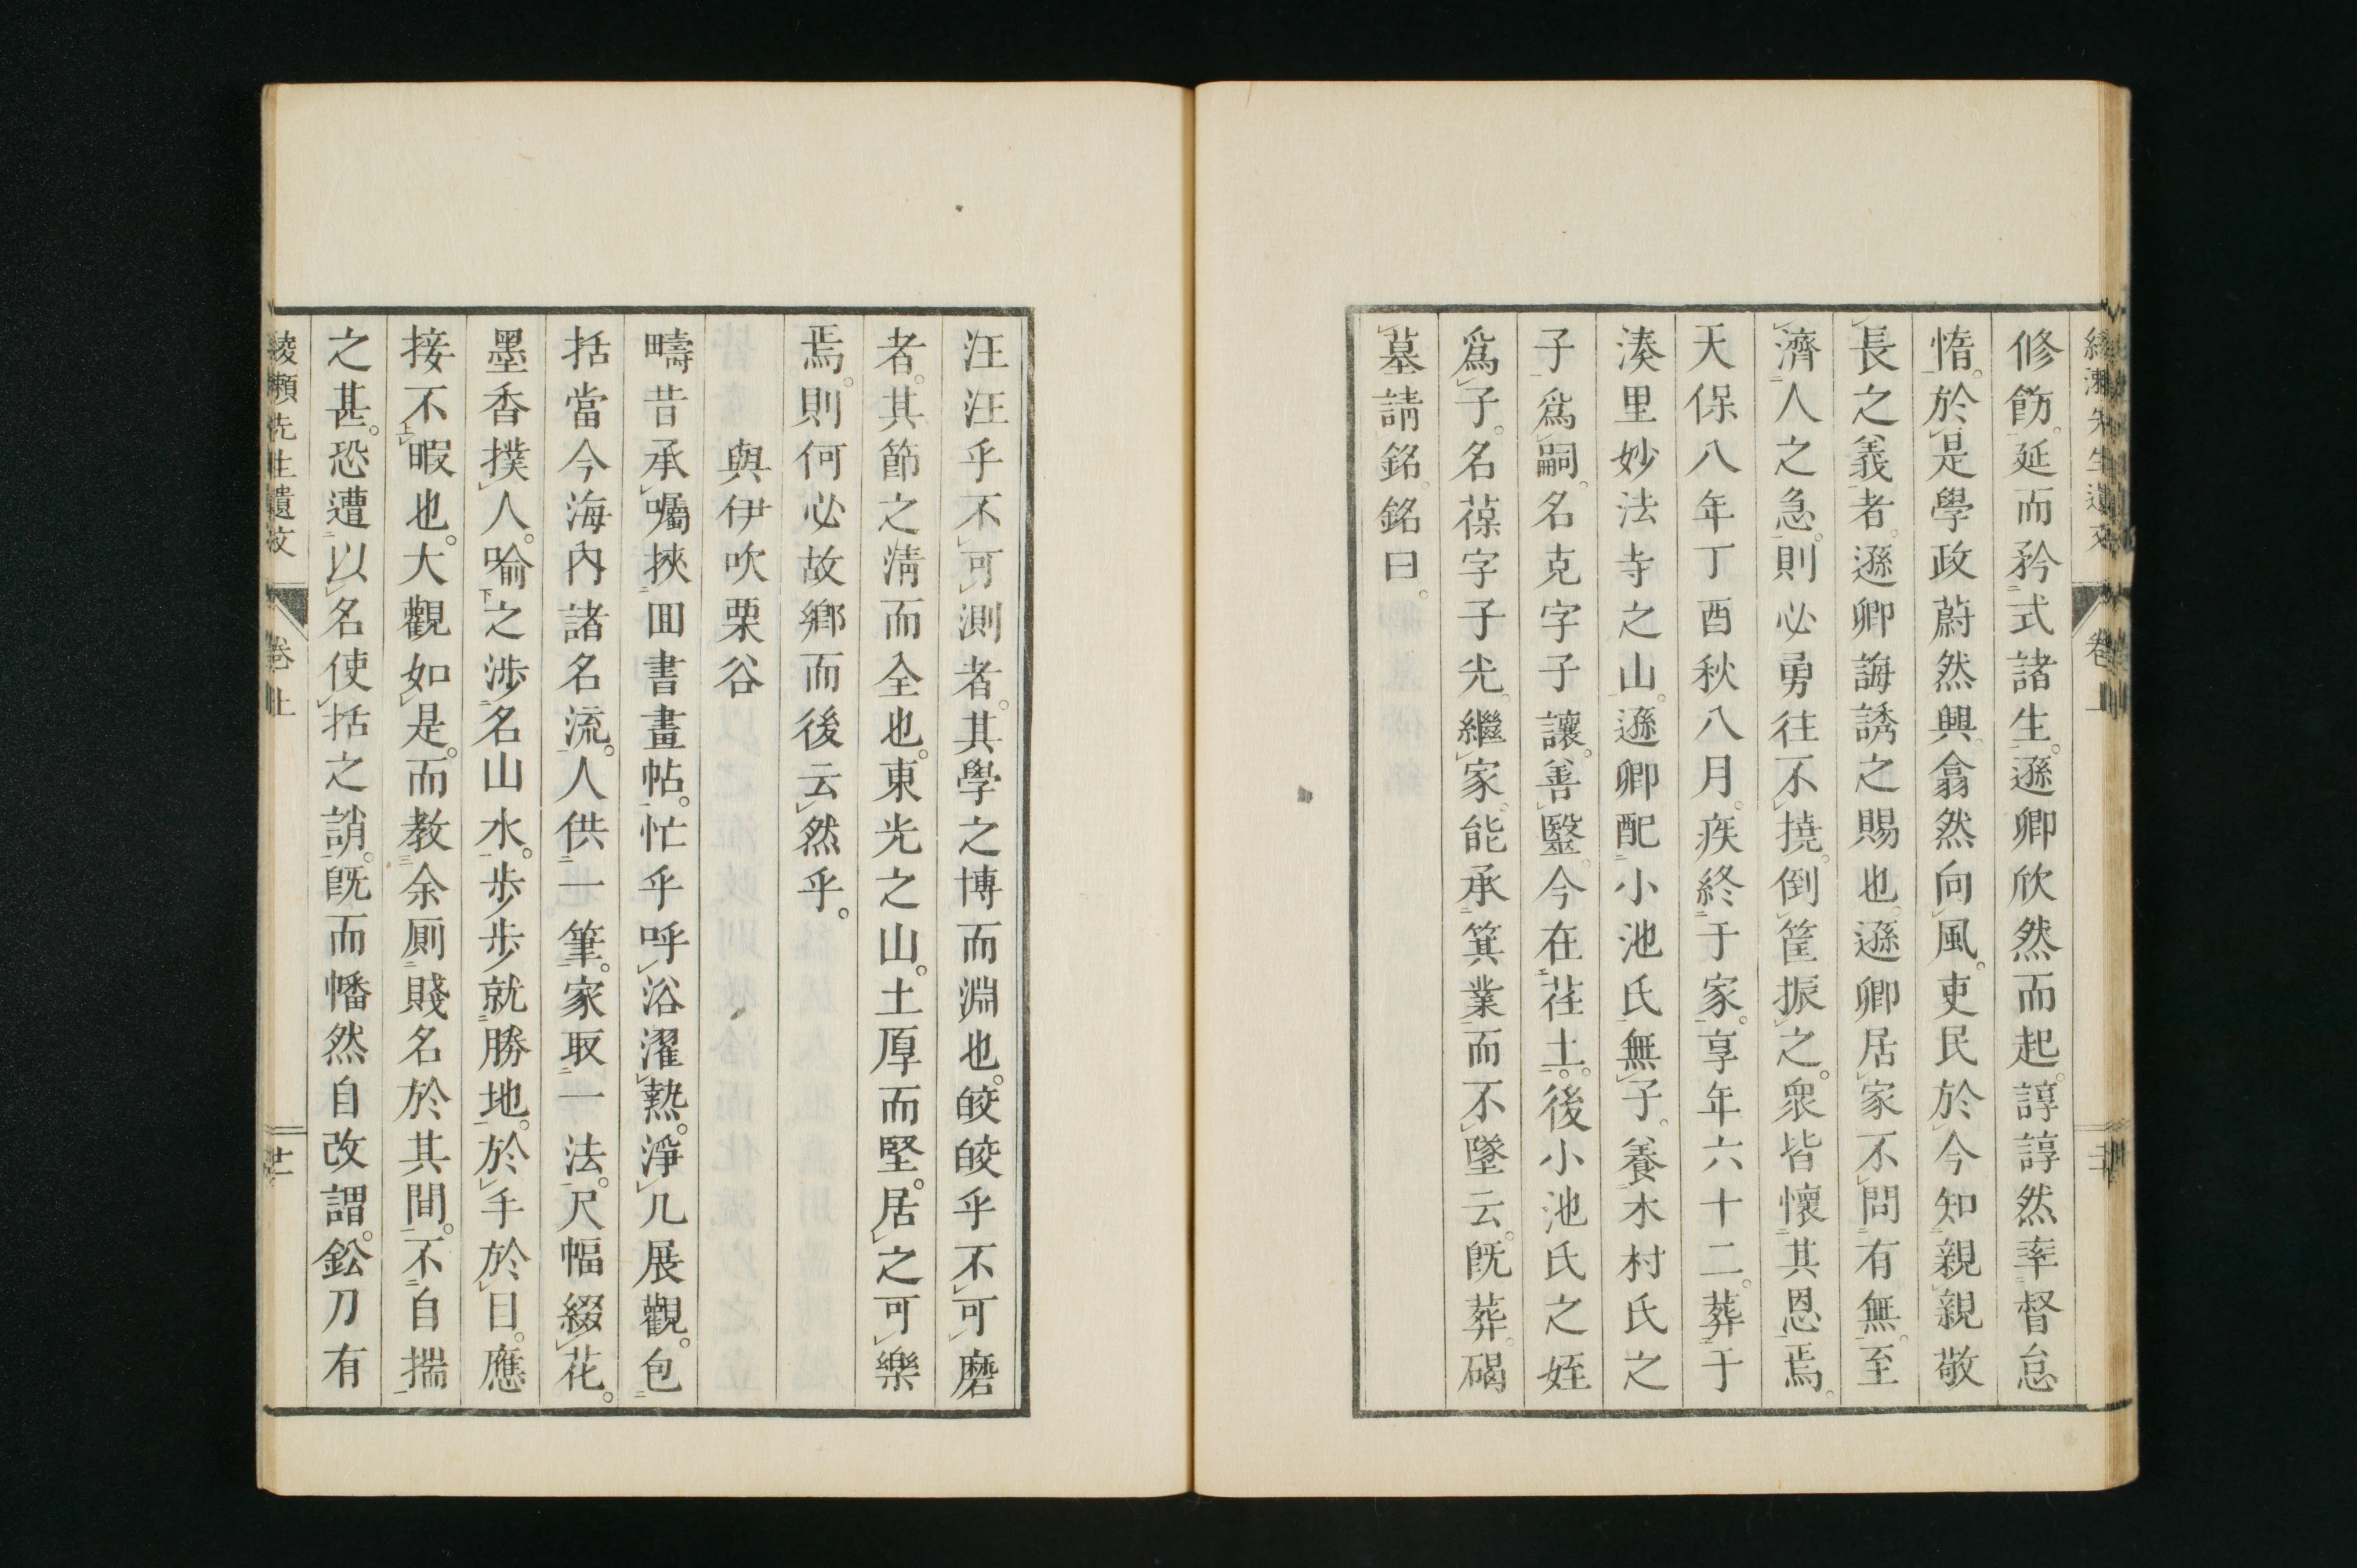 修飭。延而矜式諸生。遜卿欣然而起。諄諄然率督怠
惰。於是學政蔚然興。翕然向風。吏民於今知親親敬
長之義者。遜卿誨誘之賜也。遜卿居家不問有無。至
濟人之急。則必勇往不撓。倒筐振之。衆皆懷其恩焉。
天保八年丁酉秋八月。疾終于家。享年六十二。葬于
湊里妙法寺之山。遜卿配小池氏無子。養木村氏之
子爲嗣。名克字子讓。善毉。今在茬土。後小池氏之姪
爲子。名葆字子光。繼家。能承箕業而不墜云。既葬。碣
墓請銘。銘曰。
汪汪乎不可測者。其學之博而淵也。皎皎乎不可磨
者。其節之淸而全也。東光之山。土厚而堅。居之可樂
焉。則何必故鄉而後云然乎。
與伊吹栗谷
疇昔承囑挾囬書畫帖。忙乎呼浴濯熱。淨几展觀。包
括當今海內諸名流。人供一筆。家取一法。尺幅綴花。
墨香撲人。喻之渉名山水。步步就勝地。於手於目。應
接不暇也。大觀如是。而教余厠賤名於其間。不自揣
之甚。恐遭以名使括之誚。既而幡然自改謂。鈆刀有
綾瀬先生遺文 卷上 廿一